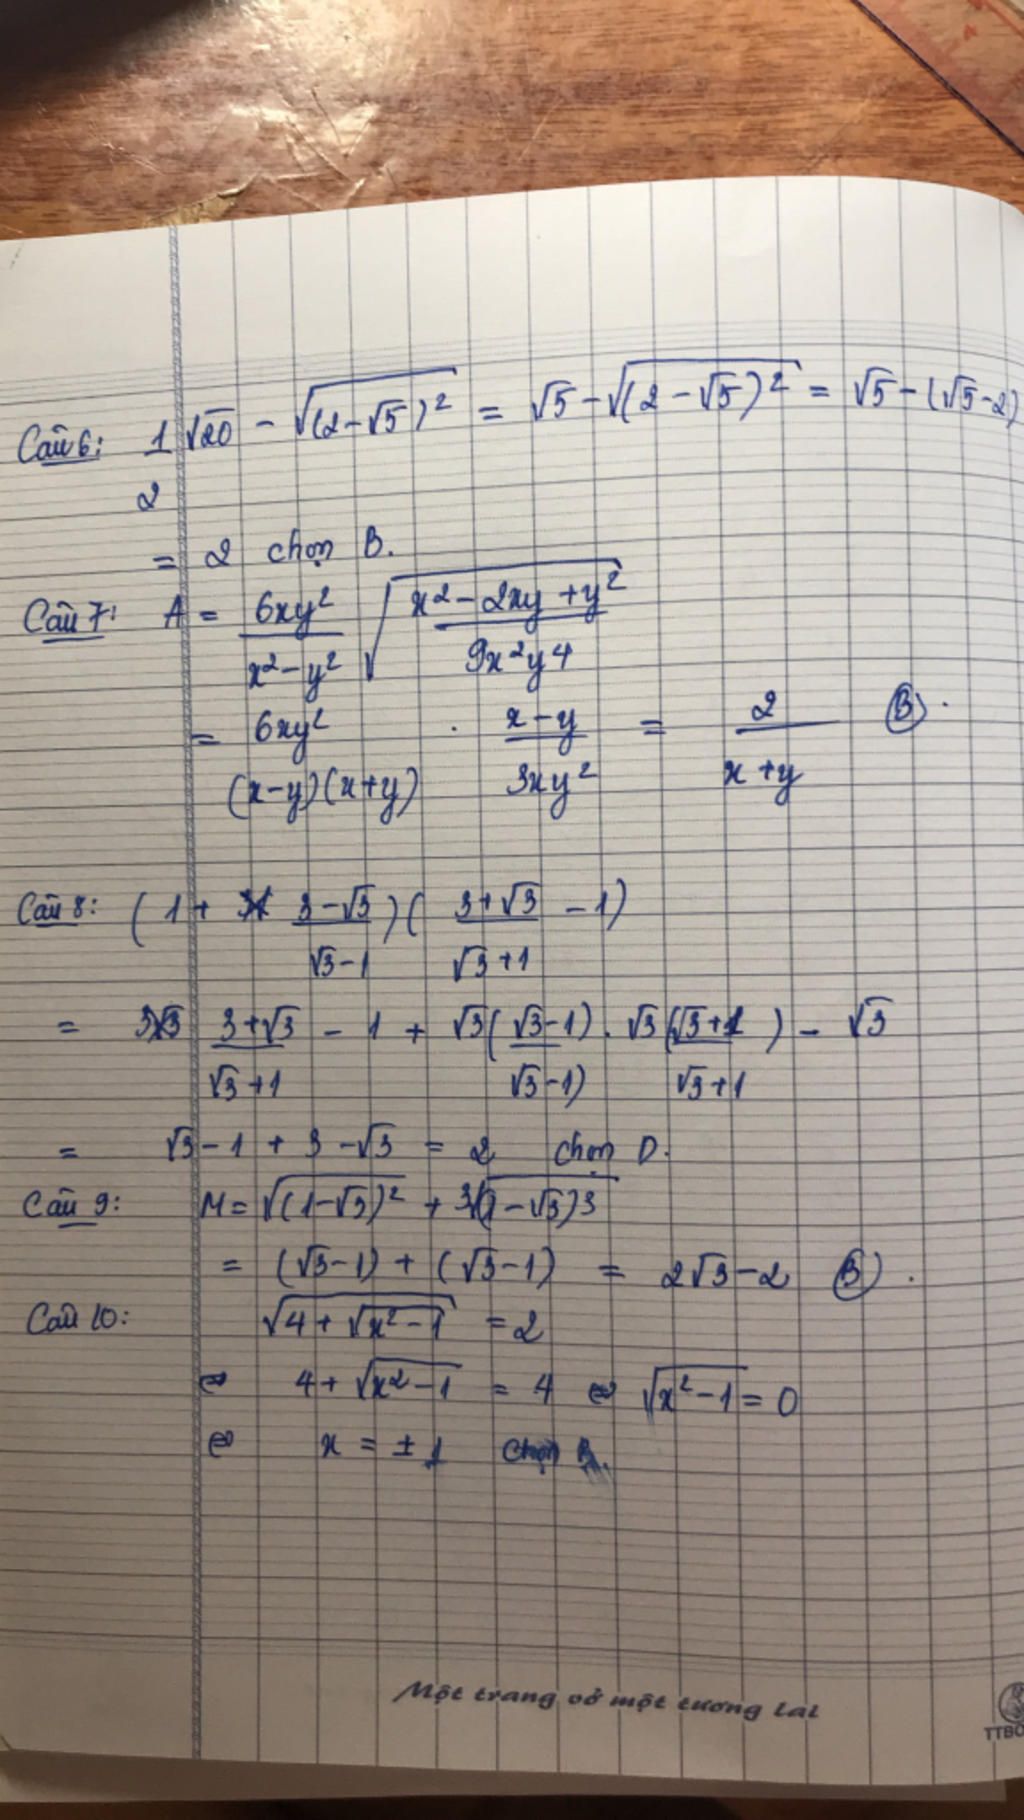 Câu 6: 1 √20 - √(2-√5)² = √5 - √(2-√5)² = √5 - (√5-2)
2
= 2 chọn B.
Câu 7: A = 6xy²/(x²-y²) √((x²-2xy+y²)/(9x²y4))
= 6xy²/((x-y)(x+y)) . (x-y)/(3xy²) = 2/(x+y) (B).
Câu 8: (1 + (3-√3)/(√3-1))((3+√3)/(√3+1) - 1)
= (3+√3)/(√3+1) - 1 + √3(√3-1)/(√3-1) . √3(√3+1)/(√3+1) - √3
= √3 - 1 + 3 - √3 = 2 chọn D.
Câu 9: M = √(1-√3)² + ³√(1-√3)3
= (√3-1) + (√3-1) = 2√3-2 (B).
Câu 10: √(4+√(x²-1)) = 2
⇔ 4+√(x²-1) = 4 ⇔ √(x²-1) = 0
⇔ x = ±1 Chọn
Một trang vở một tương lai